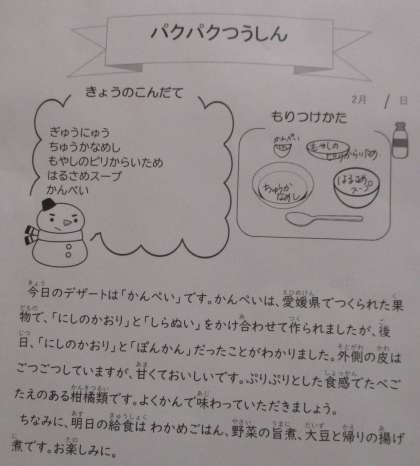 パクパクつうしん
2月 1日
きょうのこんだて
ぎゅうにゅう
ちゅうかなめし
もやしのピリからいため
はるさめスープ
かんぺい
もりつけかた
かんぺい
もやしの
ピリからいため
ちゅうか
なめし
はるさめ
スープ
今日のデザートは「かんぺい」です。かんぺいは、愛媛県でつくられた果
物で、「にしのかおり」と「しらぬい」をかけ合わせて作られましたが、後
日、「にしのかおり」と「ぽんかん」だったことがわかりました。外側の皮は
ごつごつしていますが、甘くておいしいです。ぷりぷりとした食感でたべご
たえのある柑橘類です。よくかんで味わっていただきましょう。
ちなみに、明日の給食は わかめごはん、野菜の旨煮、大豆と帰りの揚げ
煮です。お楽しみに。